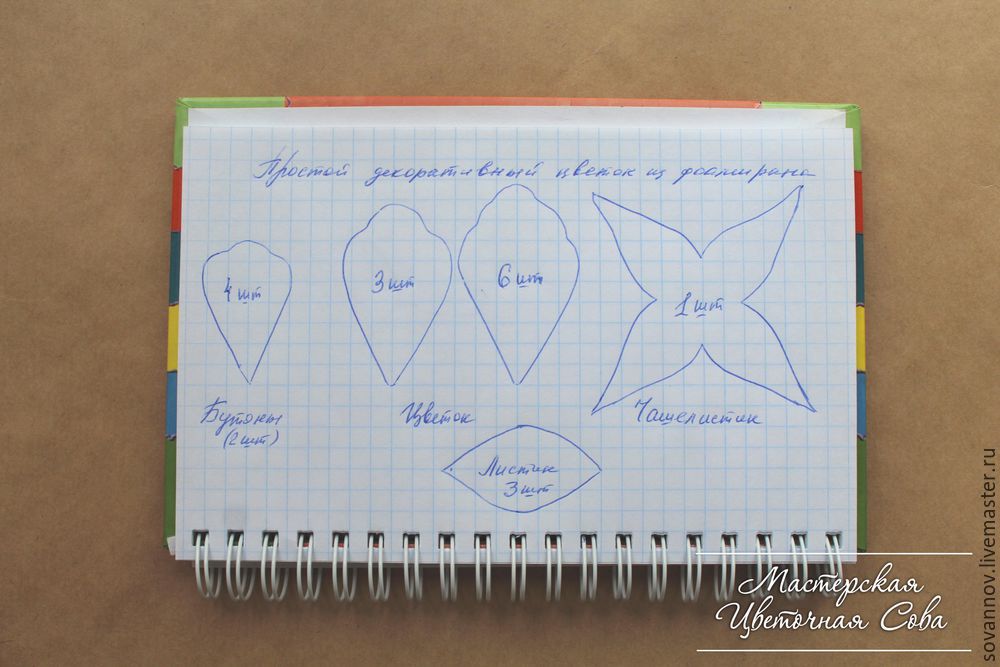 Простой декоративный цветок из фоамирана
4 шт
3 шт
6 шт
1 шт
Бутоны
(2 шт)
Цветок
Чашелистик
Листик
3 шт
Мастерская
Цветочная Сова
sovannov.livemaster.ru